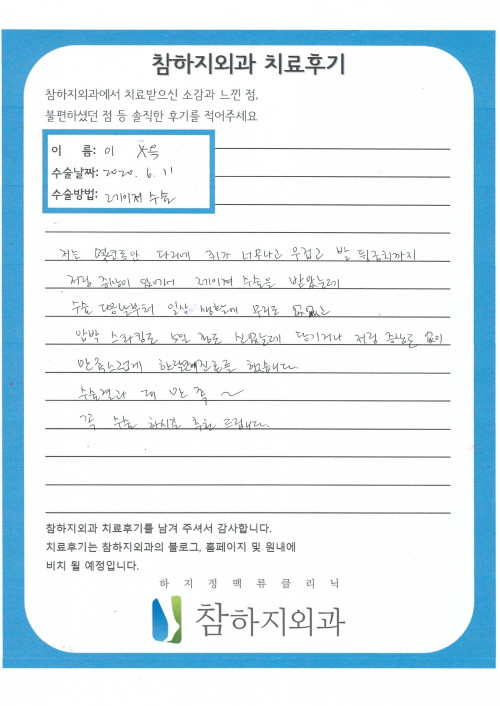 참하지외과 치료후기
참하지외과에서 치료받으신 소감과 느낀 점,
불편하셨던 점 등 솔직한 후기를 적어주세요
이 름: 이 X욱
수술날짜: 2020. 6. 11
수술방법: 레이저 수술
저는 몇년동안 다리에 쥐가 너무나고 무겁고 발 뒷꿈치까지
저린 증상이 있어서 레이져 수술을 받았는데
수술 다음날부터 일상 생활에 무리도 없었고
압박 스타킹도 5일 정도 신었는데 당기거나 저린 증상도 없이
만족스럽게 한 진료를 했습니다.
수술결과 대 만 족 ~
꼭 수술 하시길 추천 드립니다.
참하지외과 치료후기를 남겨 주셔서 감사합니다.
치료후기는 참하지외과의 블로그, 홈페이지 및 원내에
비치 될 예정입니다.
하지정맥류클리닉
참하지외과